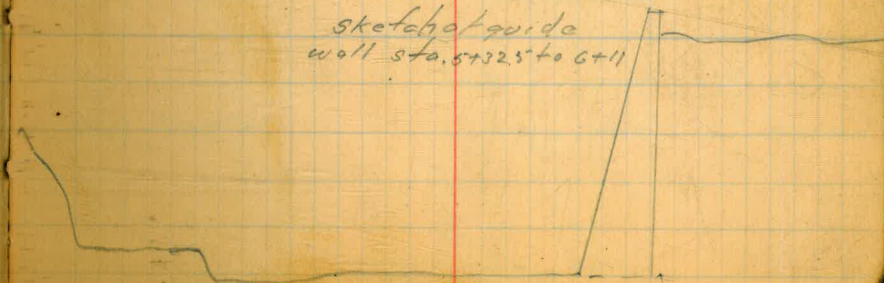 sketch of guide
wall sta. 5+32.5 to 6+11